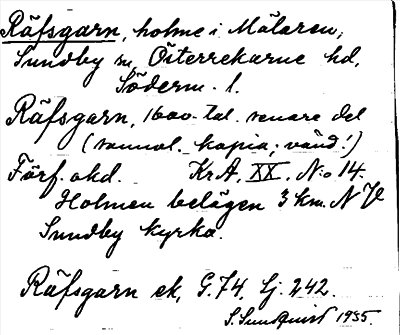 Räfsgarn, holme i Mälaren,
Sundby sn, Österrekarne hd,
Söderm. l.
Räfsgarn, 1600-tal. senare del
(sannol. kopia; vänd!)
Förf. okd. KrA, XX, N:o 14.
Holmen belägen 3 km. NV
Sundby kyrka.
Räfsgarn ek, G.74, Ej. 242.
S. Sundquist 1935